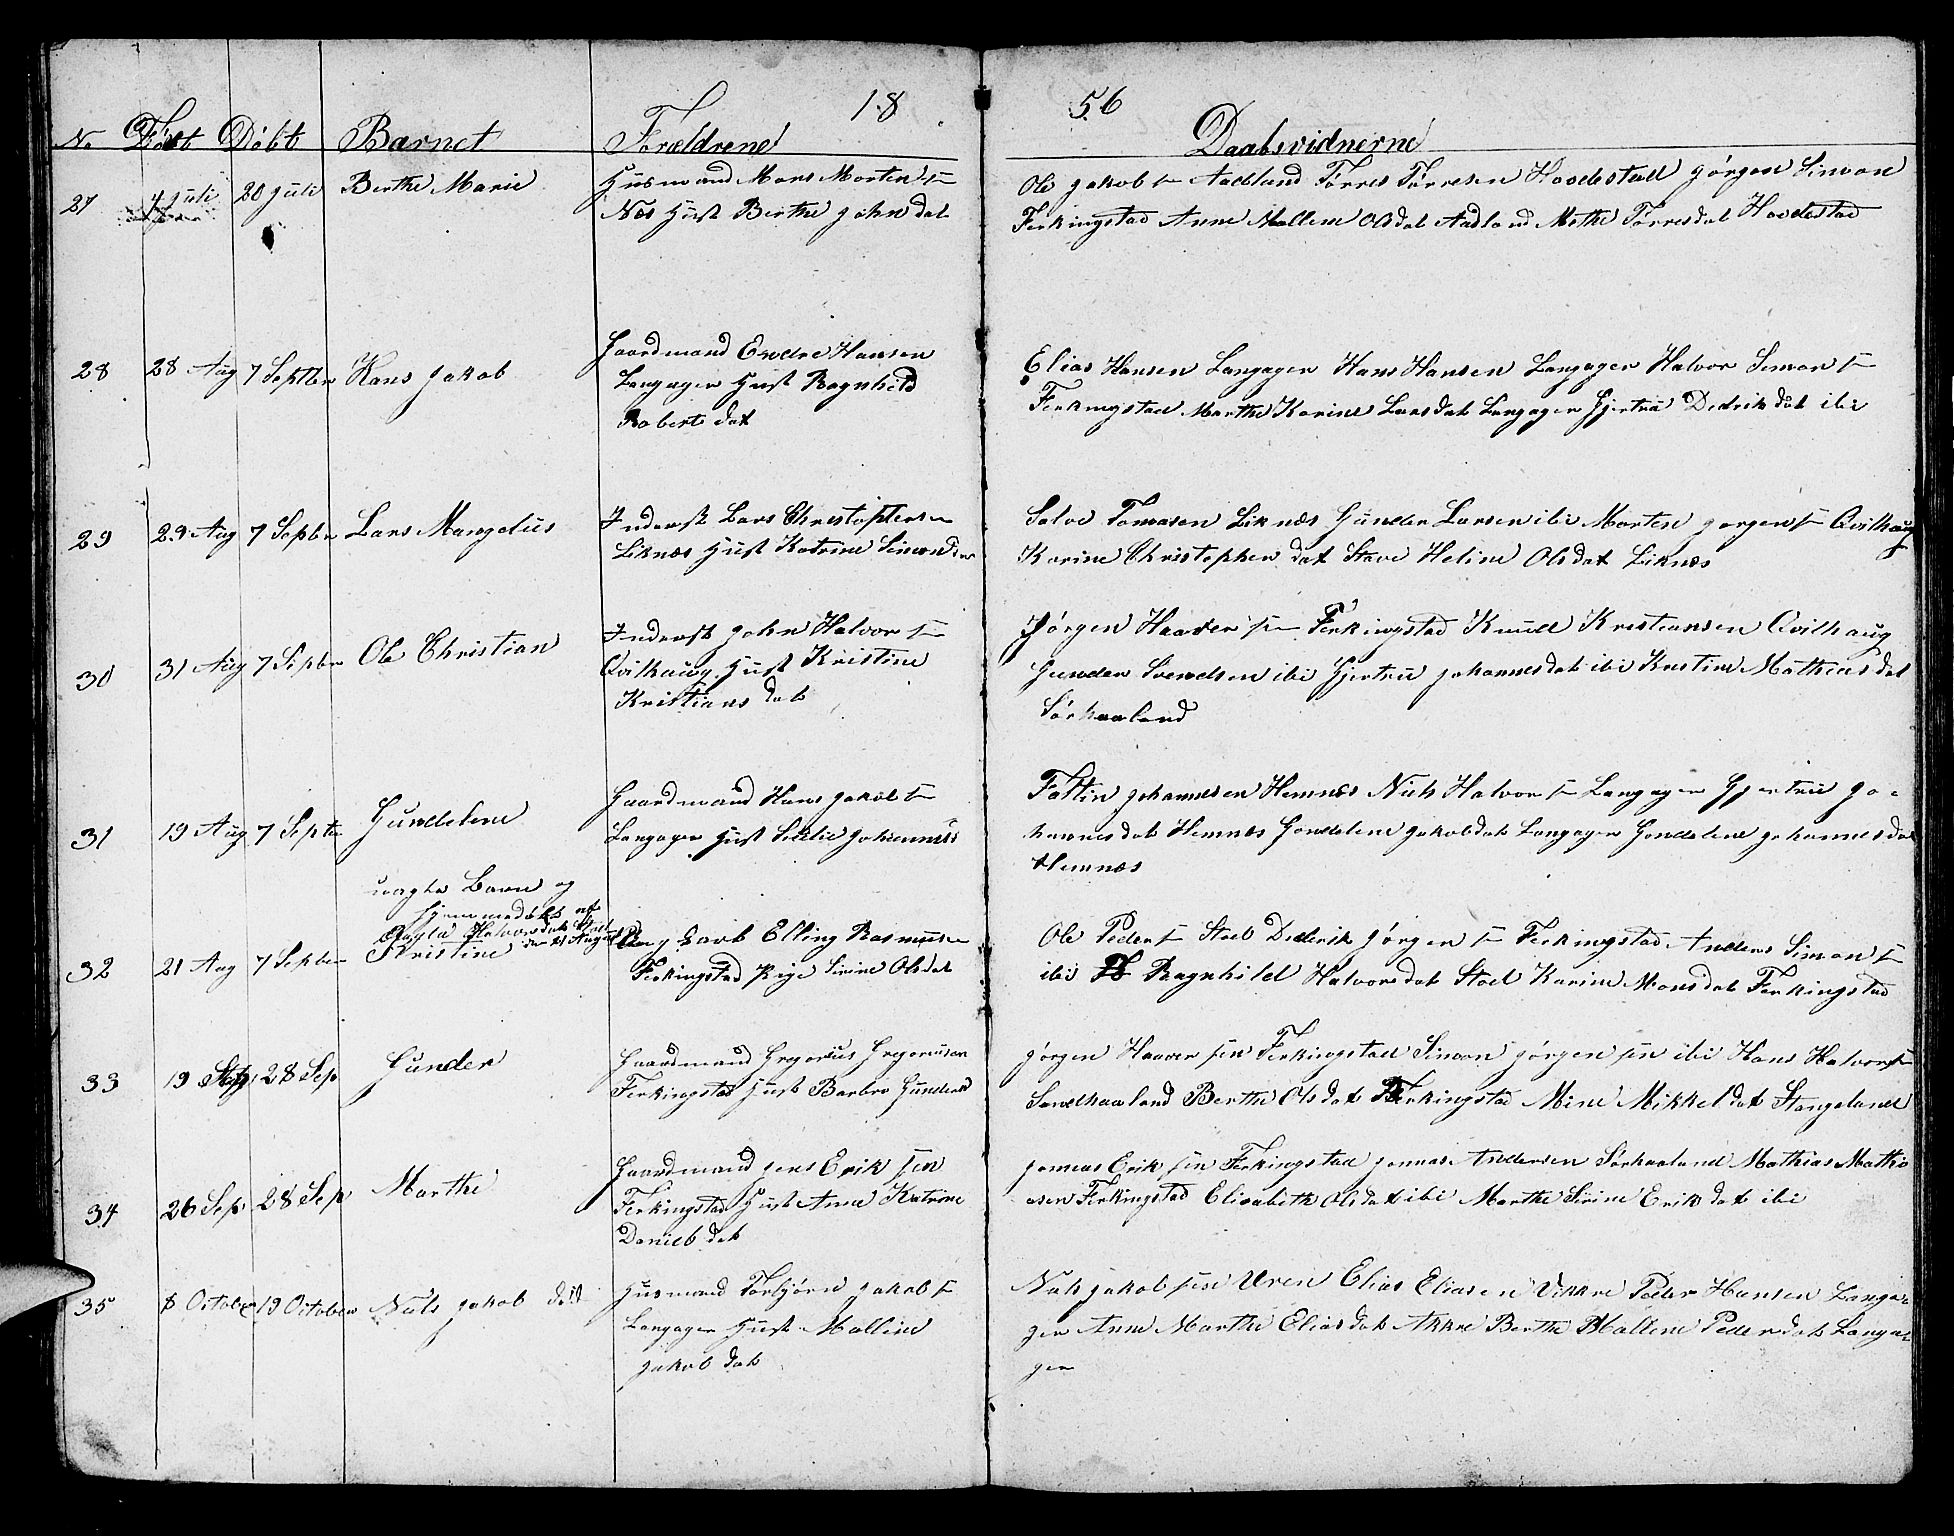 18 56
No Født Døbt Barnet Forældrene Daabsvidnerne
27 4 Juli 20 Juli Berthe Marie Huusmand Mons Morten s–
Næs Hust Berthe Johnsdat
Ole Jakob s– Aadland Tørres Tørresen Hovdestad Jørgen Simon
Ferkingstad Anne Mallene Olsdat Aadland Marthe Tørresdat Hovdestad
28 28 Aug 7 Septbr Hans Jakob Gaardmand Endre Hansen
Langager Hust Ragnhild
Roberts dat
Elias Hansen Langager Hans Hansen Langager Halvor Simon s–
Ferkingstad Marthe Karine Larsdat Langager Gjertru Dedrik dat ibi
29 29 Aug 7 Septbr Lars Mangelus Inderst Lars Christophersen
Liknæs Hust Katrine Simonsdat
Salve Tomasen Liknæs Gunder Larsen ibi Morten Jørgen s– Qvilhaug
Karine Christopher dat Stave Heline Olsdat Liknæs
30 31 Aug 7 Septbr Ole Christian Inderst John Halvor s–
Qvilhaug Hust Kristine
Kristians dat
Jørgen Haaver s– Ferkingstad Knud Kristiansen Qvilhaug
Gunder Svendsen ibi Gjertru Johannesdat ibi Kristine Mathias dat
Sørhaaland
31 19 Aug 7 Septbr Gundelene Gaardmand Hans Jakob s–
Langager Hust Sicilie Johannesd
Johannesen Hemnæs Niels Halvor s– Langager Gjertru Jo-
hannesdat Hemnæs Gondeline Jakobdat Langager Gondeline Johannesdat
Hemnæs
uægte Barn og
hjemmedøbt af
Halvorsdat
32 21 Aug 7 Septber Kristine den 21 August Ung Karl Elling Rasmusen
Ferkingstad Pige Sirine Olsdat
Ole Peder s– Stol Diderik Jørgen s– Ferkingstad Anders Simon s–
ibi Ragnhild Halvorsdat Stol Karine Monsdat Ferkingstad
33 19 Sep 28 Sep Gunder Gaardmand Gregorius Gregoriusen
Ferkingstad Hust Barbro Gundersd
Jørgen Haaver sen Ferkingstad Simon Jørgen sen ibi Hans Halvor s–
Sandhaaland Berthe Olsdat Ferkingstad Mine Mikkel dat Stangeland
34 26 Sep 28 Sep Marthe Gaardmand Jens Erik sen
Ferkingstad Hust Anne Katrine
Daniels dat
Jonnas Erik sen Ferkingstad Jonnas Andersen Sørhaaland Mathias Mathi
asen Ferkingstad Elisabeth Olsdat ibi Marthe Sirine Erik dat ibi
35 8 October 19 October Niels Jakob død Husmand Torbjørn Jakob s–
Langager Hust Malline
Jakob dat
Niels Jakob sen Uren Elias Eliasen Vikkre Peder Hansen Langa-
ger Anne Marthe Elias dat Akkre Berthe Mallene Peder dat Langa-
ger